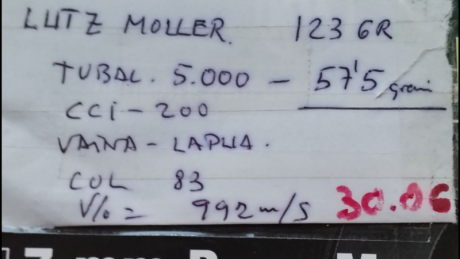 LUTZ MOLLER. 123 GR
TUBAL. 5.000 - 57'5 grains
CCI - 200
VAINA - LAPUA.
COL 83
V/0 = 992 m/s 30.06
7 mm